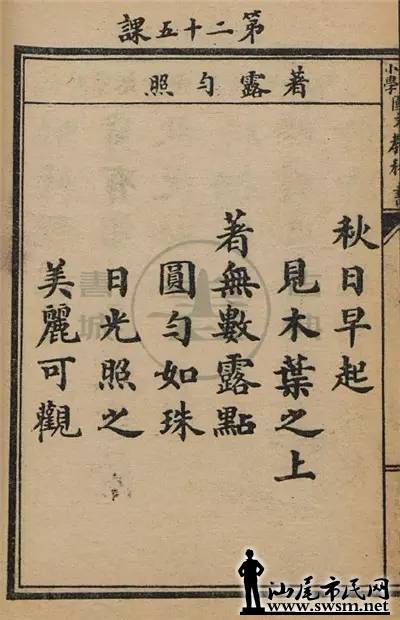 第二十五課
著露勻照
秋日早起
見木葉之上
著無數露點
圓勻如珠
日光照之
美麗可觀
小學國文教科書
汕尾市民网
www.swsm.net